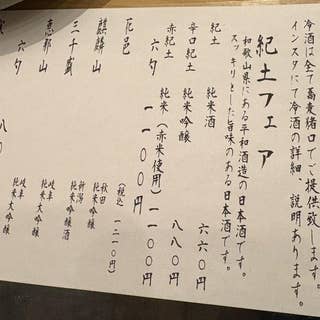 冷酒は全て蕎麦猪口でご提供致します。
インスタにて冷酒の詳細、説明あります。
紀土フェア
和歌山県にある平和酒造の日本酒です。
スッキリとした旨味のある日本酒です。
紀土 純米酒 六六〇円
辛口紀土 純米吟醸 八八〇円
赤紀土 純米(赤米使用)一一〇〇円
六夕
花邑 秋田 純米吟醸
(税込 一二一〇円)
麒麟山 新潟 純米吟醸酒
三千盛 岐阜 純米大吟醸
恵那山 岐阜 純米大吟醸
六夕